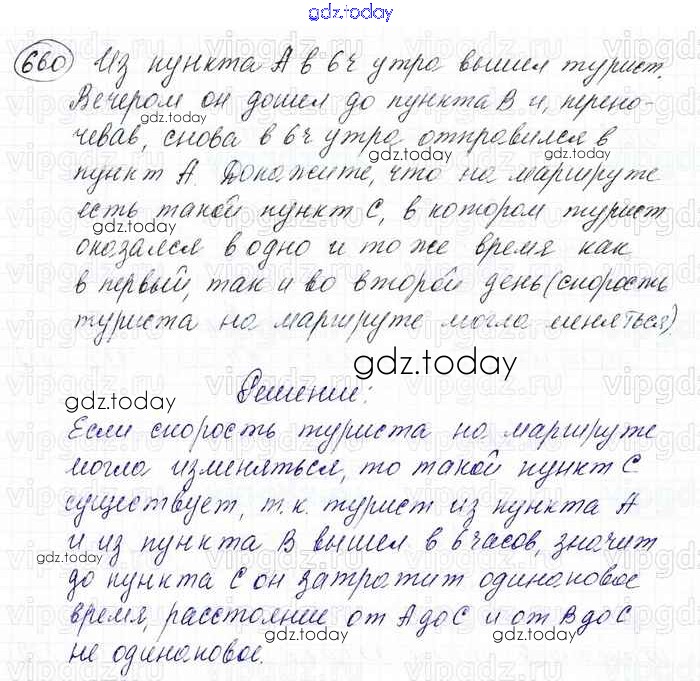 gdz.today
660 Из пункта А в 6ч утра вышел турист.
Вечером он дошел до пункта В и, перено-
gdz.today
чевав, снова в 6ч утра отправился в
gdz.today
пункт А. Докажите, что на маршруте
gdz.today
есть такой пункт С, в котором турист
оказался в одно и то же время как
в первый, так и во второй день (скорость
туриста на маршруте могла меняться)
gdz.today
gdz.today
Решение:
Если скорость туриста на маршруте
могла изменяться, то такой пункт С
существует, т.к. турист из пункта А
gdz.today
и из пункта В вышел в 6 часов, значит
gdz.today
до пункта С он затратит одинаковое
время, расстояние от А до С и от В до С
gdz.today
не одинаковое.